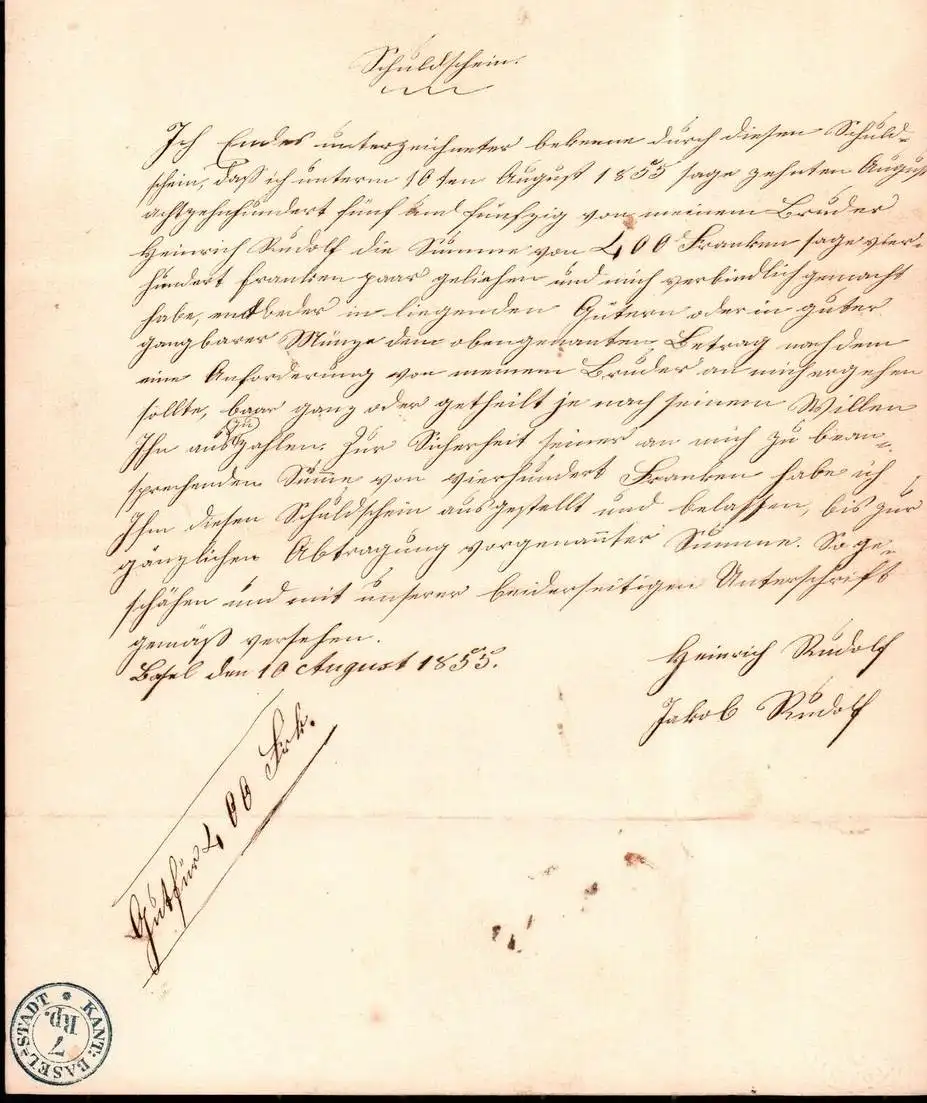 Schuldschein.
Ich Endes unterzeichneter bekenne durch diesen Schuld-
schein, daß ich unterm 10ten August 1855 sage zehnten August
achtzehnhundert fünf und fünfzig von meinem Bruder
Heinrich Rudolf die Summe von 400 Franken sage vier-
hundert franken paar geliehen und mich verbindlich gemacht
habe, entweder in liegenden Gütern oder in guter
gangbarer Münze dem obengenanten Betrag nach dem
eine Anforderung von meinem Bruder an mich ergehen
sollte, baar ganz oder getheilt je nach seinem Willen
Ihn auszuzahlen. Zur Sicherheit seiner an mich zu bean-
sprechenden Summe von vierhundert Franken habe ich
Ihm diesen Schuldschein ausgestellt und belassen, bis zur
gänzlichen Abtragung vorgenannter Summe. So ge-
schähen und mit unserer beiderseitigen Unterschrift
gemäß versehen.
Basel den 10 August 1855.
Heinrich Rudolf
Jakob Rudolf
Gut für 400 Frk.
KANT: BASEL-STADT
7
Rp.